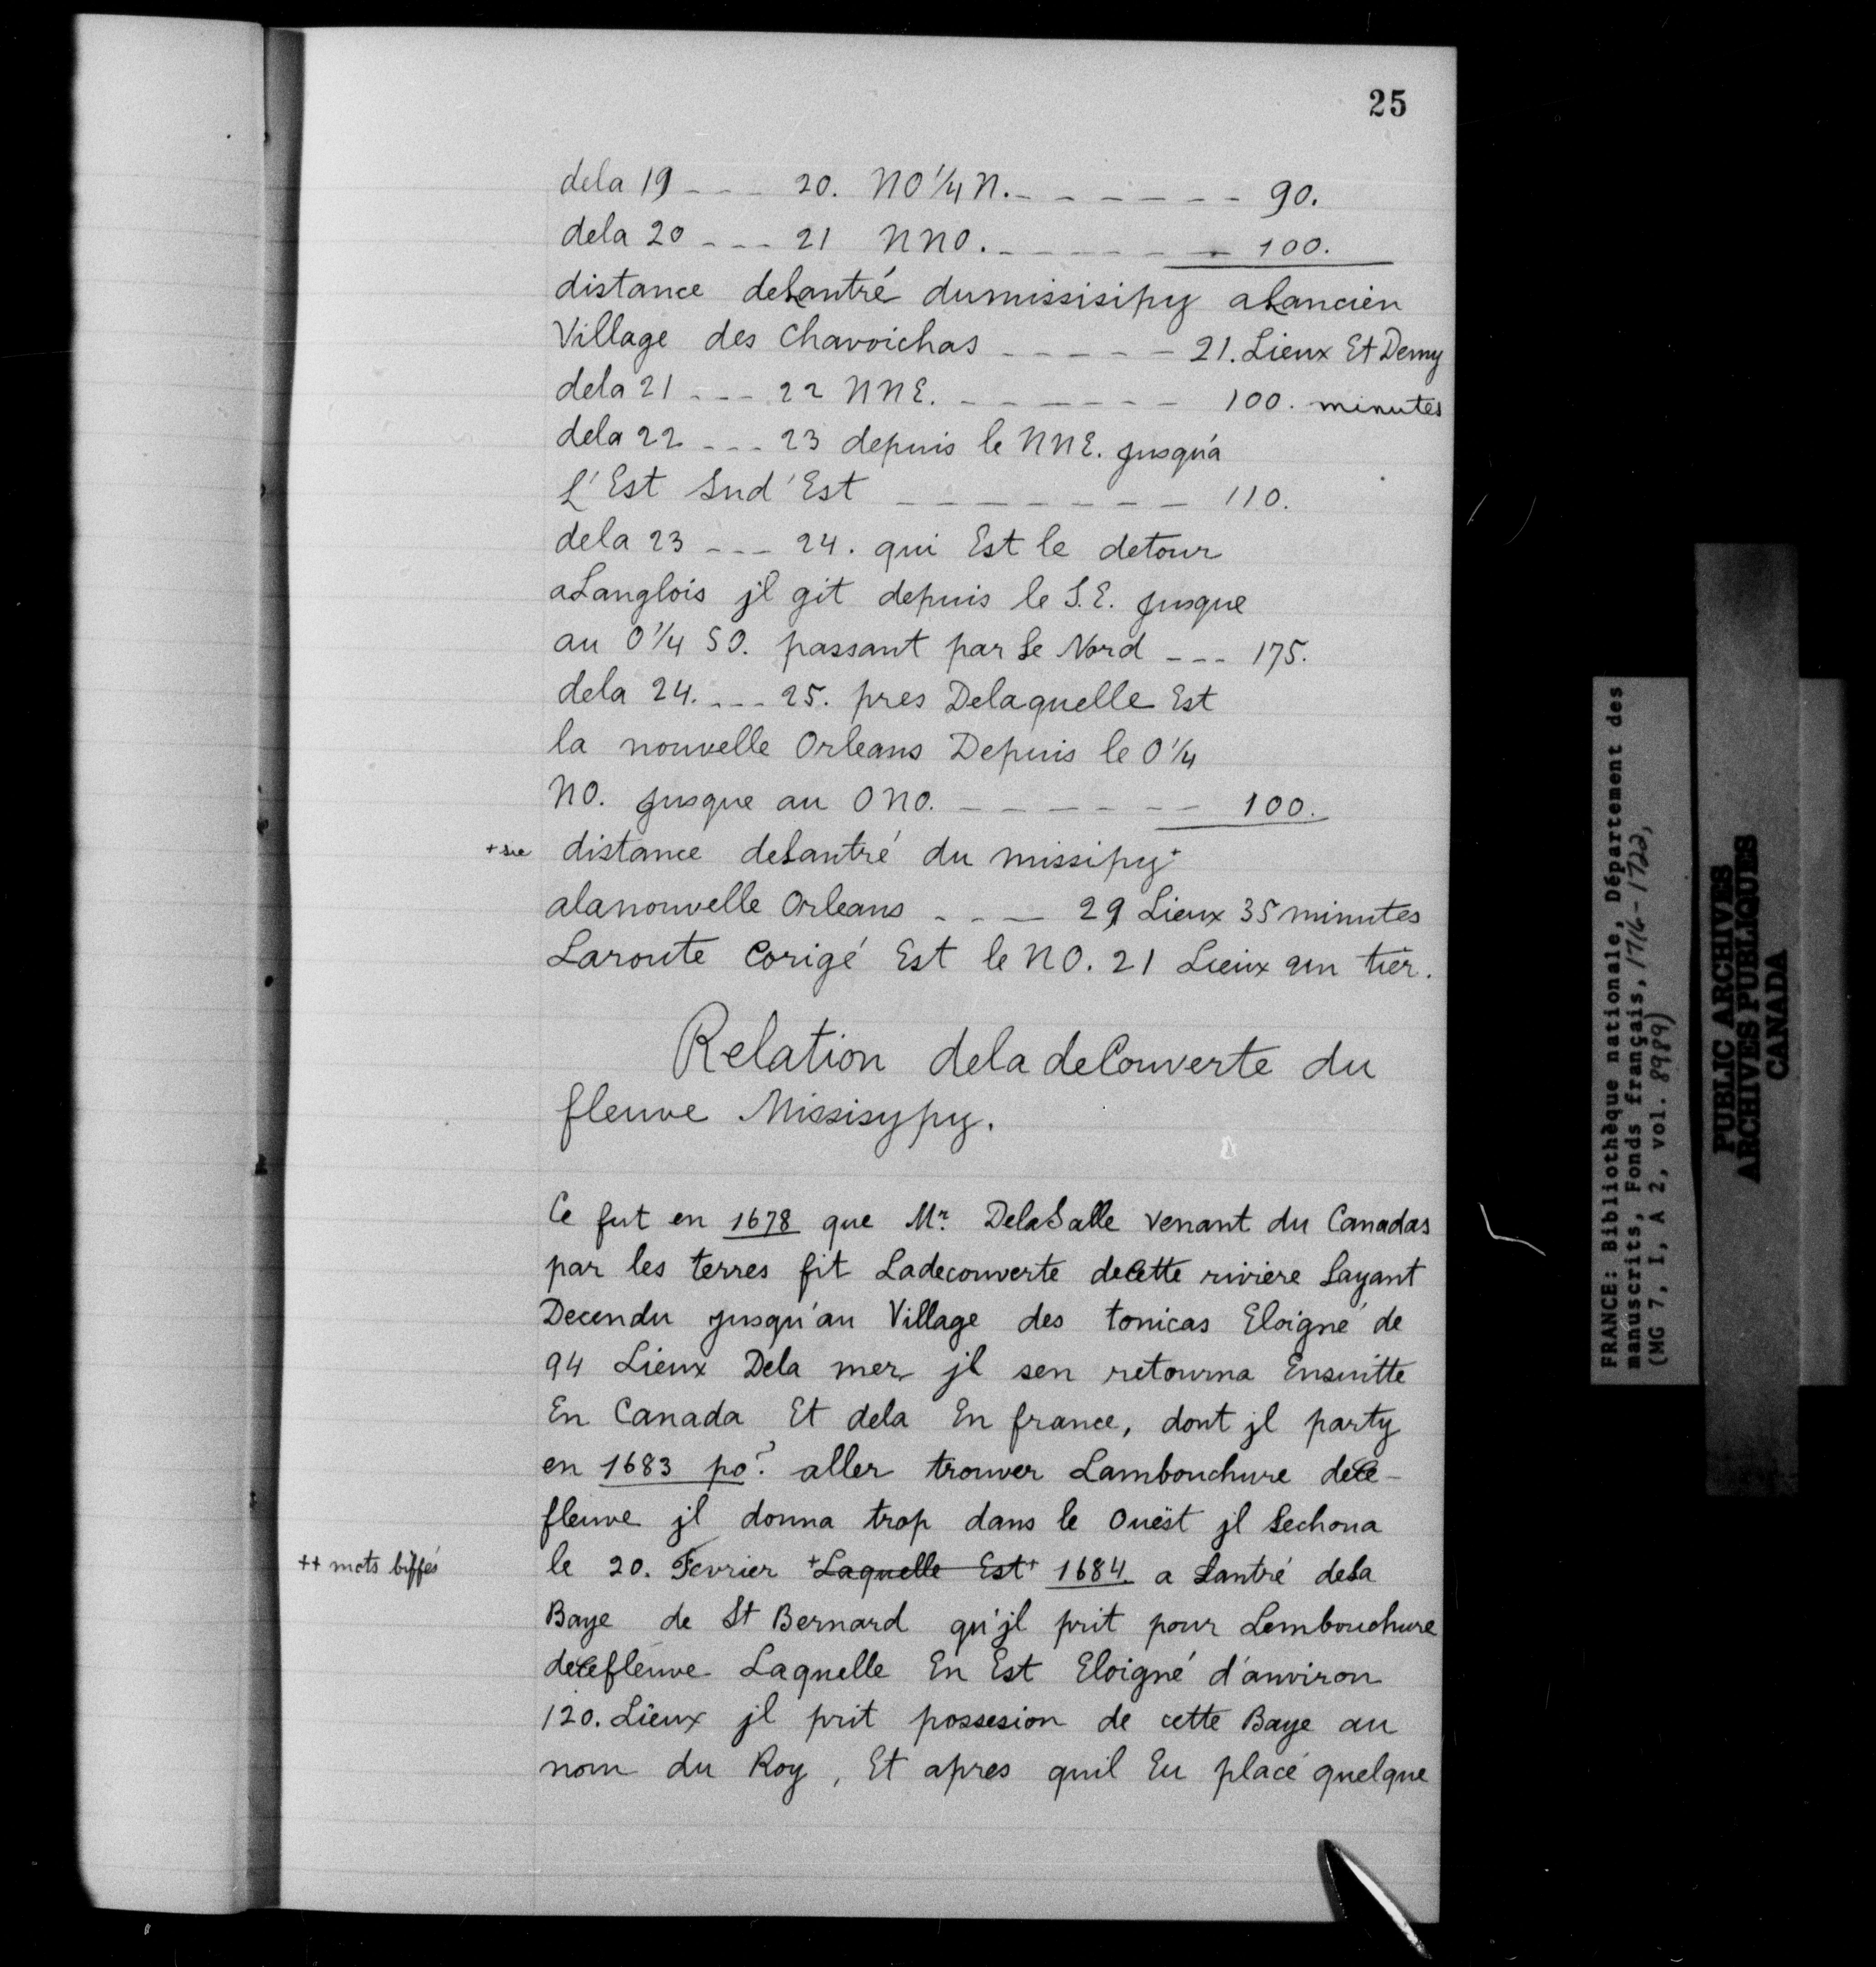 25
dela 19 - - - 20. NO 1/4 N. - - - - - - - 90.
dela 20 - - - 21 NNO. - - - - - - - 100.
distance deLantré dumissisipy aLancien
Village des Chavoichas - - - - - 21. Lieux Et Demy
dela 21 - - - 22 NNE. - - - - - - - 100. minutes
dela 22 - - - 23 depuis le NNE. jusqu'a
L'Est Sud'Est - - - - - - - - 110.
dela 23 - - - 24. qui Est le detour
aLanglois jl git depuis le S.E. jusque
au O 1/4 SO. passant par Le Nord - - - 175.
dela 24. - - - 25. pres Delaquelle Est
la nouvelle Orleans Depuis le O 1/4
NO. jusque au ONO. - - - - - - - 100.
+ sic distance deLantré du missipy +
alanouvelle Orleans - - - 29 Lieux 35 minutes
Laroute Corigé Est le NO. 21 Lieux un tier.
Relation dela deCouverte du
fleuve Missisypy.
Ce fut en 1678 que Mr. DelaSalle venant du Canadas
par les terres fit Ladecouverte deCette riviere Layant
Decendu jusqu'au Village des tonicas Eloigné de
94 Lieux Dela mer jl sen retourna Ensuitte
En Canada Et dela En france, dont jl party
en 1683 por. aller trouver Lambouchure deCe-
fleuve jl donna trop dans le Ouëst jl Sechoua
++ mots biffés le 20. Fevrier +Laquelle Est+ 1684 a Lantré deLa
Baye de St Bernard qu'jl prit pour Lembouchure
deCefleuve Laquelle En Est Eloigné d'anviron
120. Lieux jl prit possesion de cette Baye au
nom du Roy, Et apres quil Eu placé quelque
FRANCE: Bibliothèque nationale, Département des
manuscrits, Fonds français, 1716-1722,
(MG 7, I, A 2, vol. 8989)
PUBLIC ARCHIVES
ARCHIVES PUBLIQUES
CANADA